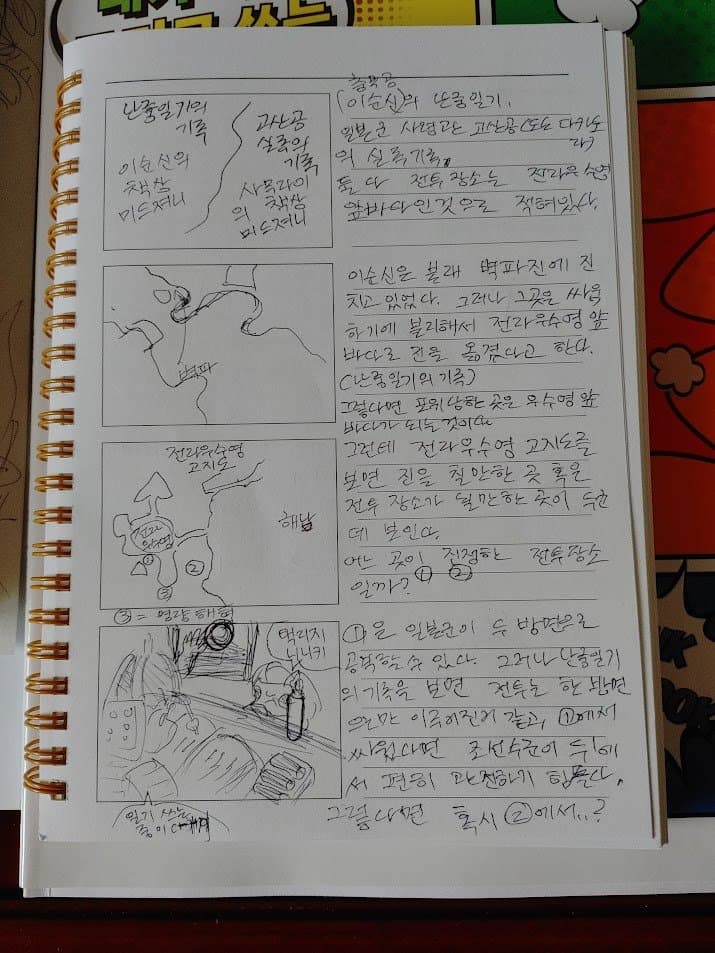 난중일기의
기록
이순신의
책상
미드저니
고산공
실록의
기록
사무라이
의 책상
미드저니
충무공
(이순신)의 난중일기.
일본군 사령관 고산공(도도 다카토
라)
의 실록기록.
둘 다 전투장소는 전라우수영
앞바다인것으로 적혀있다.
벽파
이순신은 본래 벽파진에 진
치고 있었다. 그러나 그곳은 싸움
하기에 불리해서 전라우수영 앞
바다로 진을 옮겼다고 한다.
(난중일기의 기록)
그렇다면 포위당한 곳은 우수영 앞
바다가 되는것이다
전라우수영
고지도
해남
전라
우수영
①
②
③
③ = 명량해협
그런데 전라우수영 고지도를
보면 진을 칠만한 곳 혹은
전투 장소가 될만한 곳이 두군
데 보인다.
어느 곳이 진정한 전투장소
일까? ① ②
택리지
니니키
일기 쓰는
중이
①은 일본군이 두 방면으로
공격할 수 있다. 그러나 난중일기
의 기록을 보면 전투는 한 방면
으로만 이루어진거 같고, ①에서
싸웠다면 조선수군이 뒤에
서 편히 관전하기 힘들다.
그렇다면 혹시 ②에서..?